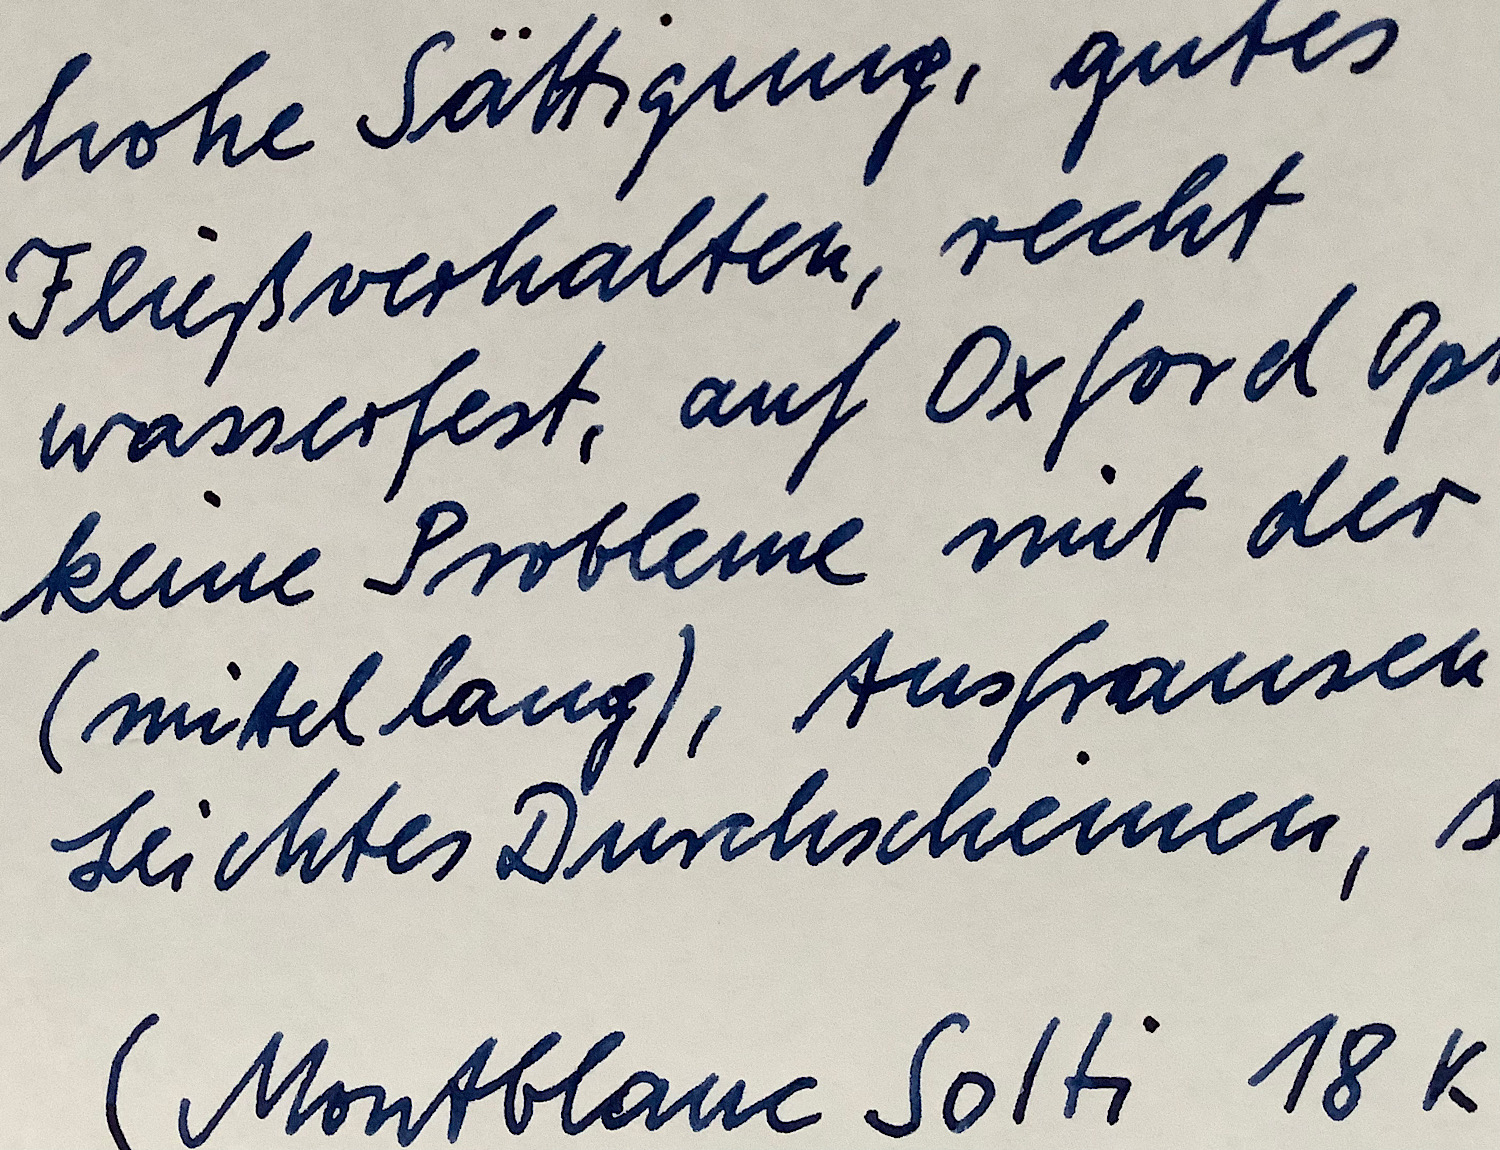 hohe Sättigung, gutes
Fließverhalten, recht
wasserfest, auf Oxford
keine Probleme mit der
(mittellang), Ausfransen
Leichtes Durchscheinen,
(Montblanc Solti 18 K